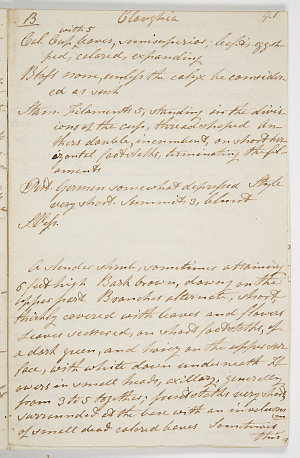 B Cloughia
with 5
Cal. Cup, leaves, semisuperior,
ped, colored, expanding
Bloss none, unless the calyx be consider-
ed as such
Stam. Filaments 5, standing in the divis-
ions of the cup, thread shaped An-
thers double, incumbent, on short hor-
izontal footstalks, terminating the fil-
aments
Pist. Germen somewhat depressed Style
very short Summit 3, blunt
S. Vess.
A slender shrub, sometimes attaining
5 feet high Bark brown, downy on the
upper part Branches alternate, short
thinly covered with leaves and flowers
Leaves scattered, on short footstalks, of
a dark green, and hairy on the upper sur-
face, with white down underneath Fl-
owers in small heads, axillary, generally
from 3 to 5 together; footstalks very short
surrounded at the base with an involucrum
of small dead colored leaves Sometimes
this